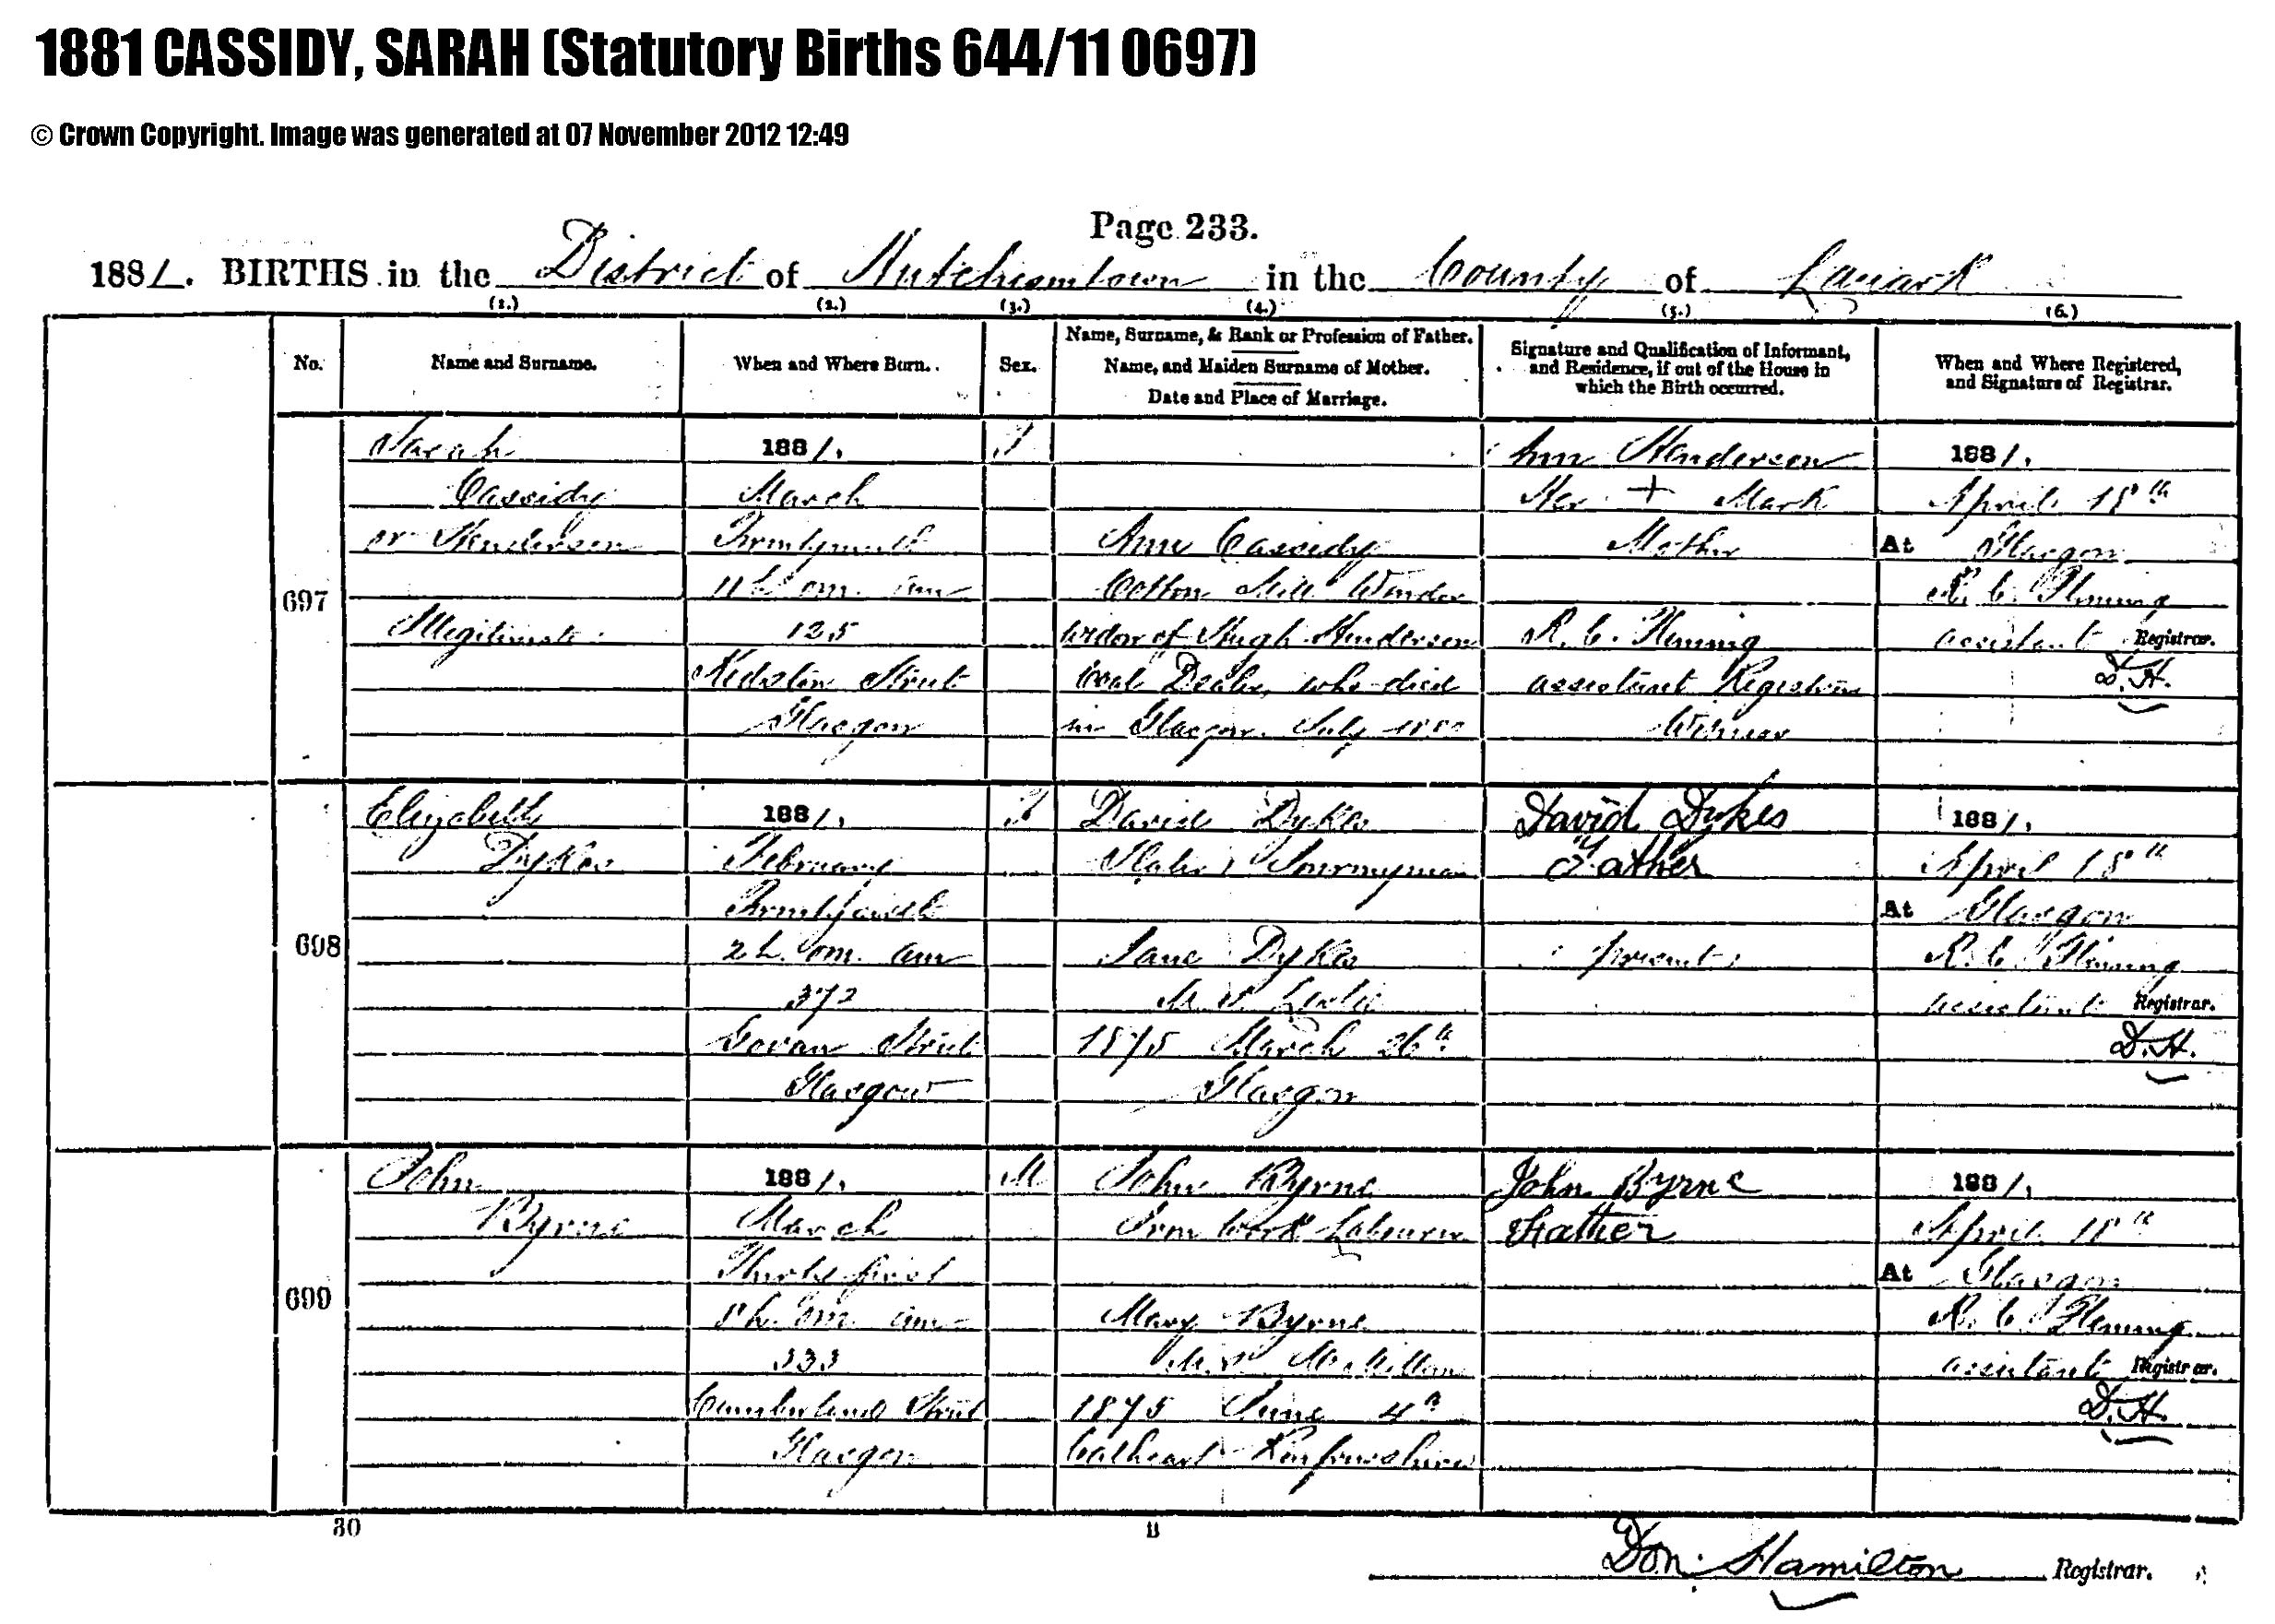 1881 CASSIDY, SARAH (Statutory Births 644/11 0697)
© Crown Copyright. Image was generated at 07 November 2012 12:49
Page 233.
1881. BIRTHS in the District of Hutchesontown in the County of Lanark
(1.) (2.) (3.) (4.) (5.) (6.)
No.
Name and Surname.
When and Where Born.
Sex.
Name, Surname, & Rank or Profession of Father.
Name, and Maiden Surname of Mother.
Date and Place of Marriage.
Signature and Qualification of Informant,
and Residence, if out of the House in
which the Birth occurred.
When and Where Registered,
and Signature of Registrar.
697
Sarah
Cassidy
or Henderson
Illegitimate
1881.
March
11 h. 0 m. am
125
Street
Glasgow
F
Ann Cassidy
Cotton Mill Winder
widow of Hugh Henderson
Coal Dealer, who died
in Glasgow July
Ann Henderson
Her + Mark
Mother
R. C. Fleming
assistant Registrar
Witness
1881.
April 18th
At Glasgow
R. C. Fleming
assistant Registrar.
D.H.
698
Elizabeth
Dykes
1881.
February
2 h. 0 m. am
372
Govan Street
Glasgow
F
David Dykes
Slater, Journeyman
Jane Dykes
M.S.
1875 March 26th
Glasgow
David Dykes
Father
present
1881.
April 18th
At Glasgow
R. C. Fleming
assistant Registrar.
D.H.
699
John
Byrne
1881.
March
Thirty first
h. 0 m. am
333
Cumberland Street
Glasgow
M
John Byrne
Iron Work Labourer
Mary Byrne
M.S. McMillan
1875 June 4th
Cathcart Renfrewshire
John Byrne
Father
1881.
April 18th
At Glasgow
R. C. Fleming
assistant Registrar.
D.H.
30
Don. Hamilton Registrar.